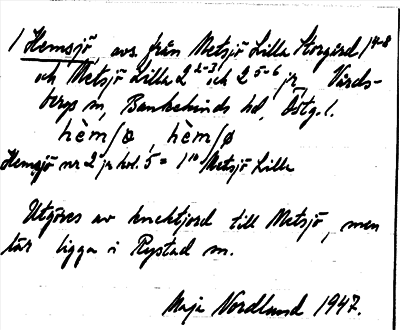 1 Hemsjö, avs. från Metsjö Lilla Storgård 1⁴⁻⁸
och Metsjö Lilla 2²⁻³ och 2⁵⁻⁶ jr, Vårds-
bergs sn, Bankekinds hd, Östg. l.
hèmʃø, hèmʃø
Hemsjö nr 2 jr kol. 5 = 1¹⁰ Metsjö Lilla
Utgöres av knektjord till Metsjö, men
lär ligga i Rystad sn.
Maja Nordlund 1947.